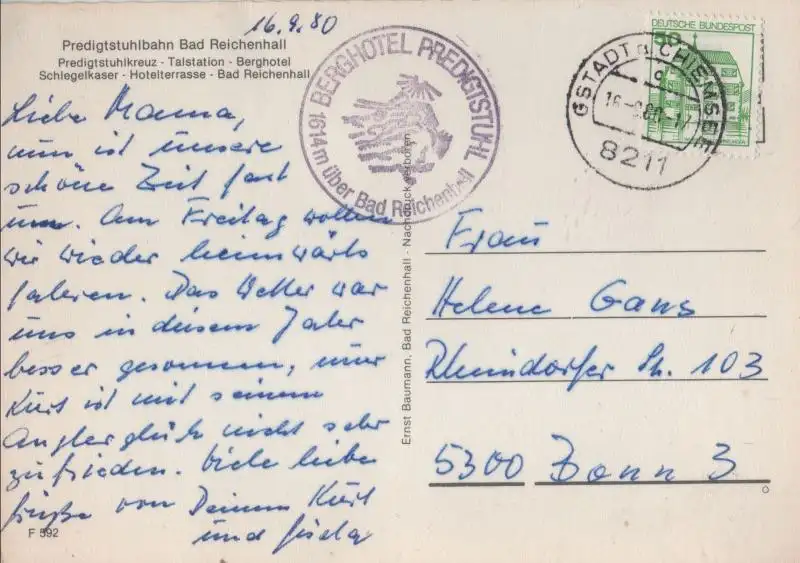 16.9.80
Predigtstuhlbahn Bad Reichenhall
Predigtstuhlkreuz - Talstation - Berghotel
Schlegelkaser - Hotelterrasse - Bad Reichenhall
Liebe Mama,
nun ist unsere
schöne Zeit fast
um. Am Freitag wollen
wir wieder heimwärts
fahren. Das Wetter war
uns in diesem Jahr
besser gesonnen, nur
Kurt ist mit seinem
Anglerglück nicht sehr
zufrieden. Viele liebe
Grüße von Deinem Kurt
und Gisela
F 592
BERGHOTEL PREDIGTSTUHL
1614 m über Bad Reichenhall
Ernst Baumann, Bad Reichenhall - Nachdruck verboten
DEUTSCHE BUNDESPOST
50
GSTADT a. CHIEMSEE
8211
Frau
Helene Gans
Rheindorfer Str. 103
5300 Bonn 3